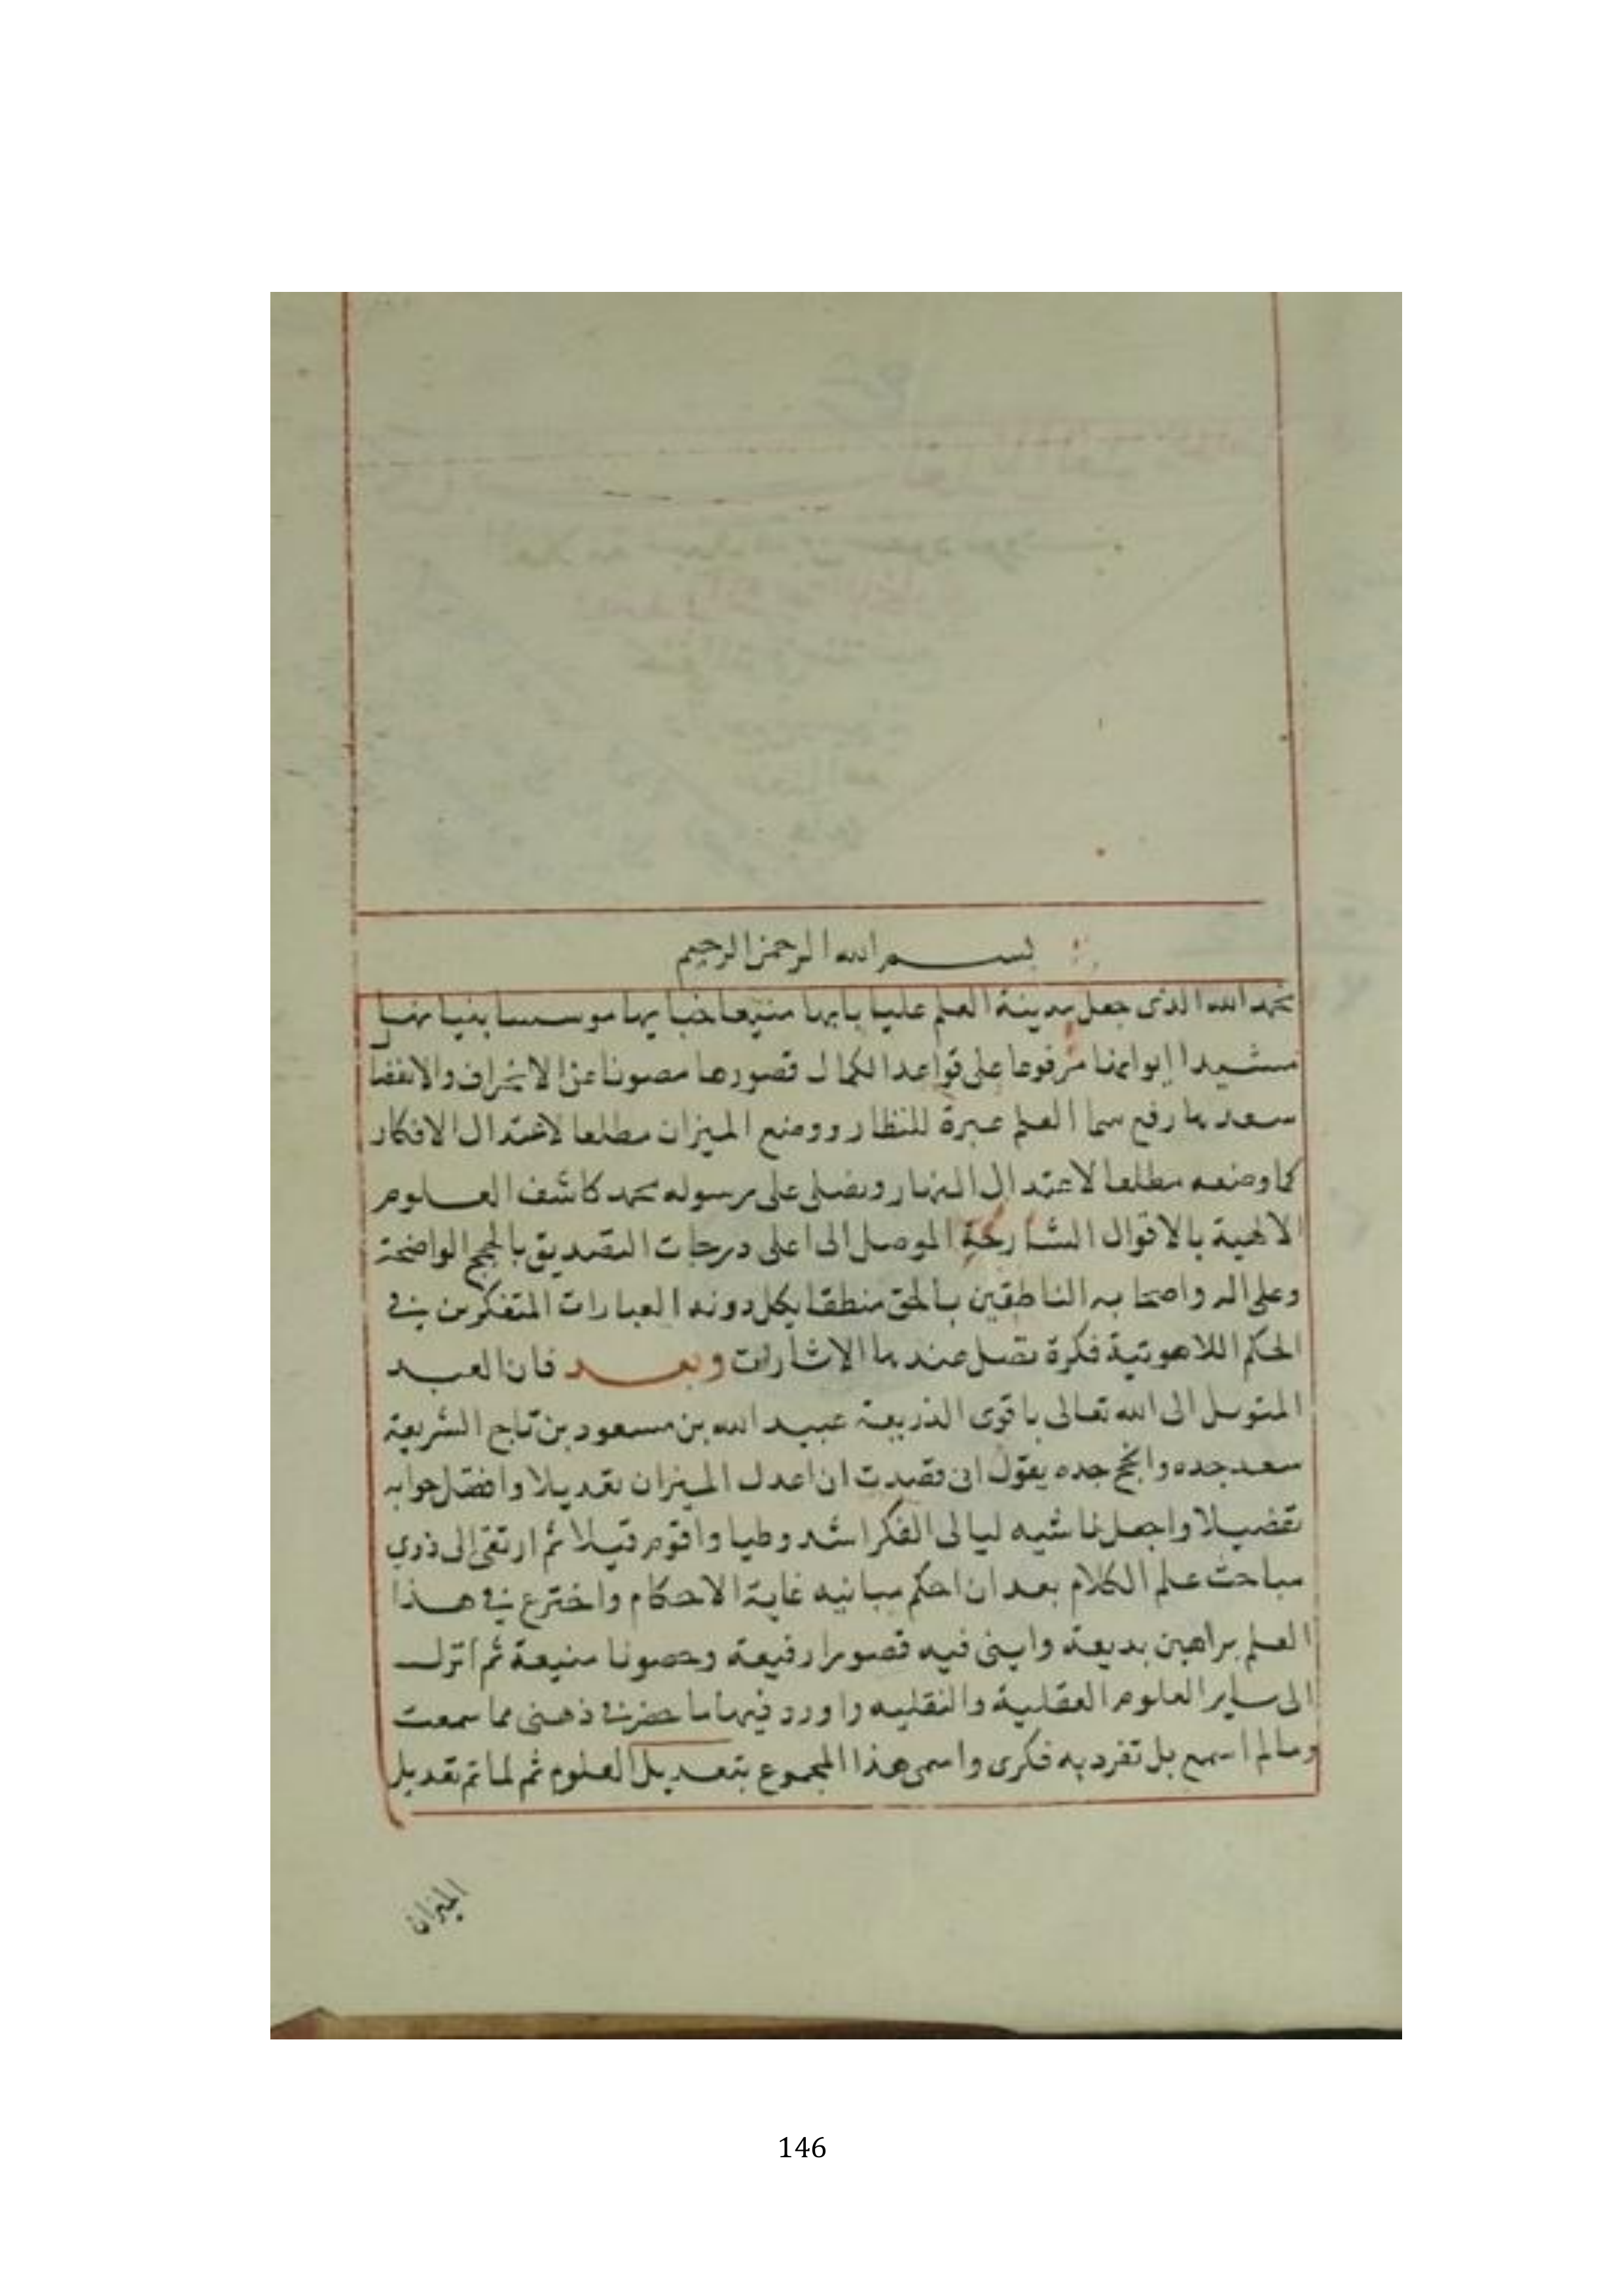 بسم الله الرحمن الرحيم
نحمد الله الذى جعل مدينة العلم عليا بابها منيعا جنابها موسسا بنيانها
مشيدا ايوانها مرفوعا على قواعد الكمال قصورها مصونا عن الانحراف والانفصا
رفع سما العلم عبرة للنظار ووضع الميزان مطلعا لاعتدال الافكار
كما وضعه مطلعا لاعتدال النهار ونصلى على رسوله محمد كاشف العلوم
الالهية بالاقوال الشارحة الموصل الى اعلى درجات التصديق بالحجج الواضحة
وعلى اله واصحابه الناطقين بالحق منطقا يكل دونه العبارات المتفكرين في
الحكم اللاهوتية فكرة تضل عندها الاشارات وبعد فان العبد
المتوسل الى الله تعالى باقوى الذريعة عبيد الله بن مسعود بن تاج الشريعة
سعد جده وانجح جده يقول انى قصدت ان اعدل الميزان تعديلا وافصل جوابه
تفصيلا واجعل ناشيه ليالى الفكر اشد وطيا واقوم قيلا ثم ارتقى الى ذرى
مباحث علم الكلام بعد ان احكم مبانيه غاية الاحكام واخترع في هذا
العلم براهين بديعة وابنى فيه قصورا رفيعة وحصونا منيعة ثم انزل
الى ساير العلوم العقلية والنقليه واورد فيها ما حضر في ذهنى مما سمعت
ومالم اسمع بل تفرد به فكرى واسمى هذا المجموع بتعديل العلوم ثم لما تم تعديل
الميزان
146